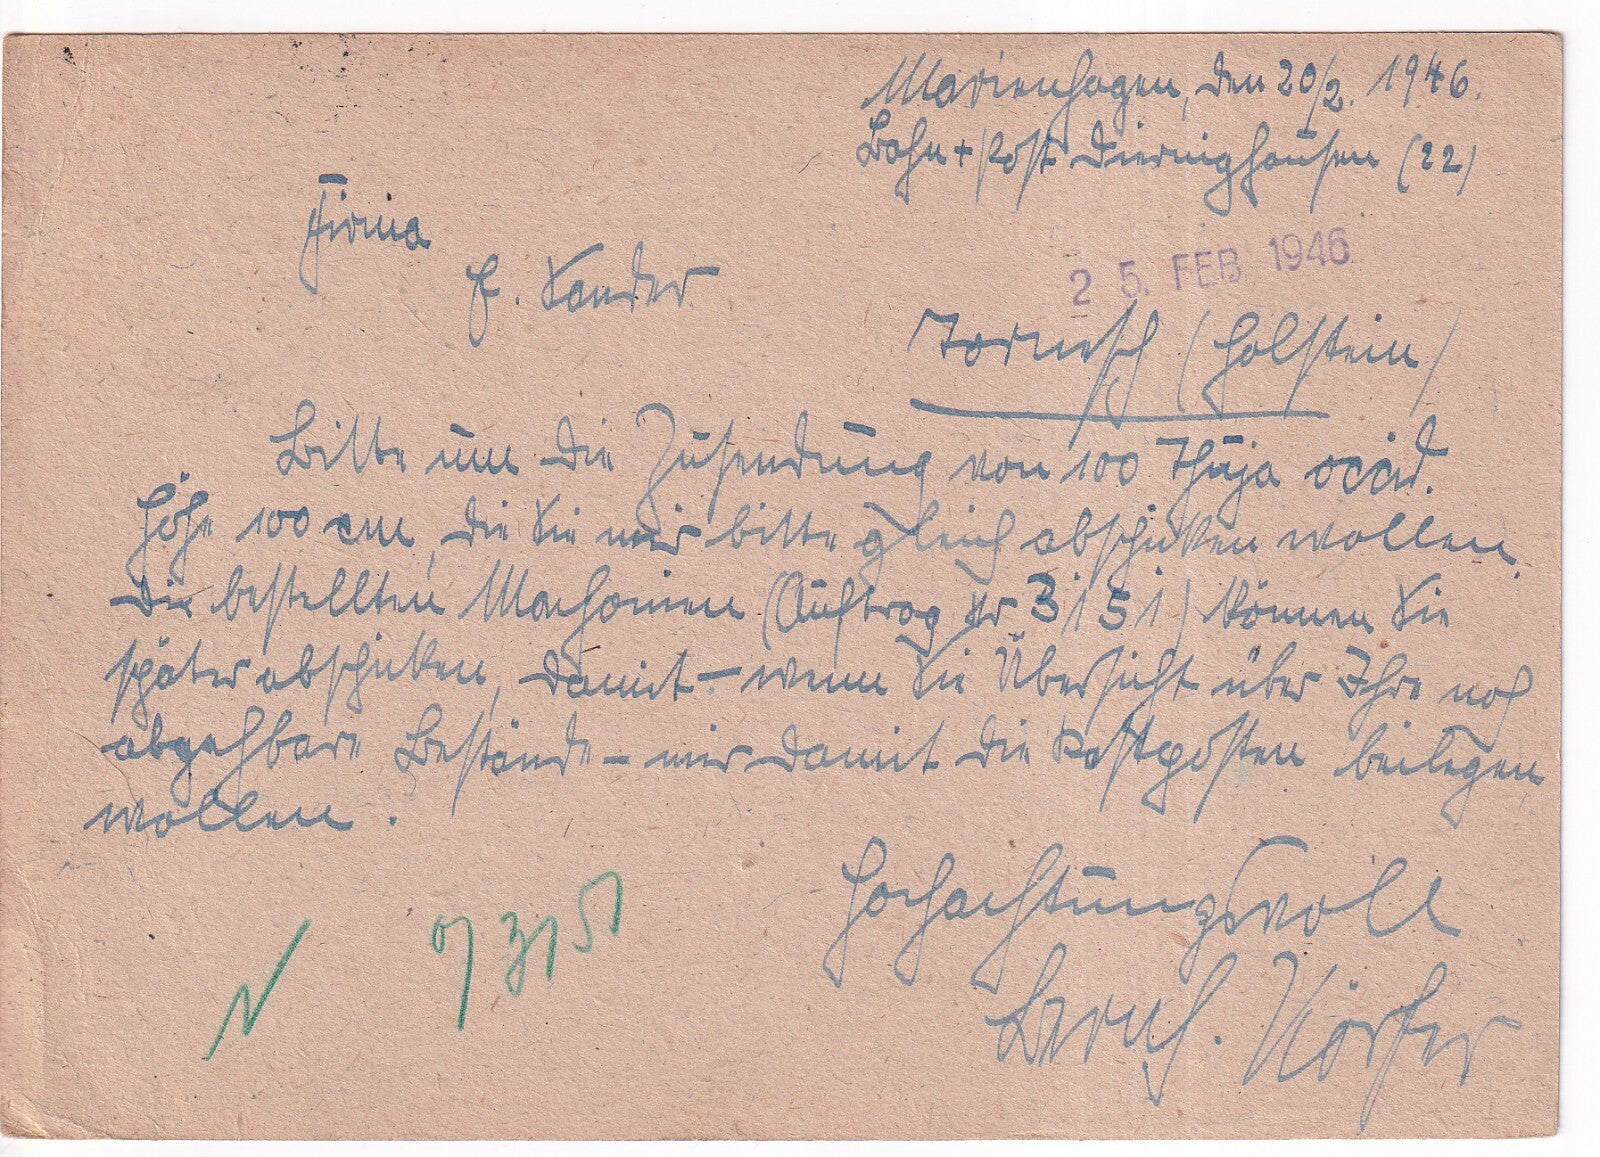 Marienhagen, den 20/2. 1946.
Bahn + Post Dieringhausen (22)
Firma
E. Sander
25. FEB 1946
Tornesch (Holstein)
Bitte um die Zusendung von 100 Thuja occid.
Höhe 100 cm, die Sie mir bitte gleich abschicken wollen.
Die bestellten Mahonien (Auftrag Nr 3151) können Sie
später abschicken, damit – wenn Sie Übersicht über Ihre noch
abgehbare Bestände – mir damit die Restposten beilegen
wollen.
Hochachtungsvoll
Bernh. Körfer
3151